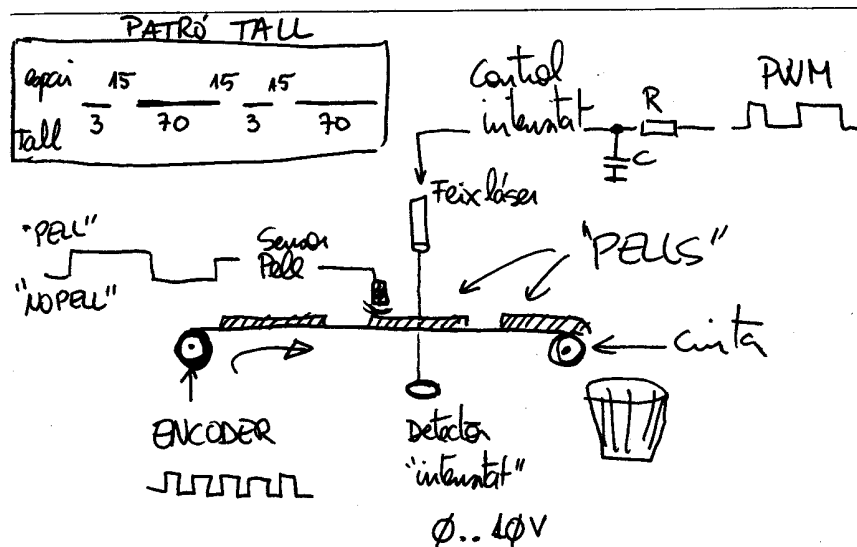 PATRÓ TALL
espai 15 15 15
Tall 3 70 3 70
Control
intensitat
R
C
PWM
Feix láser
"PELL"
"NO PELL"
Sensor
Pell
"PELLS"
cinta
ENCODER
Detector
"intensitat"
Ø..1ØV